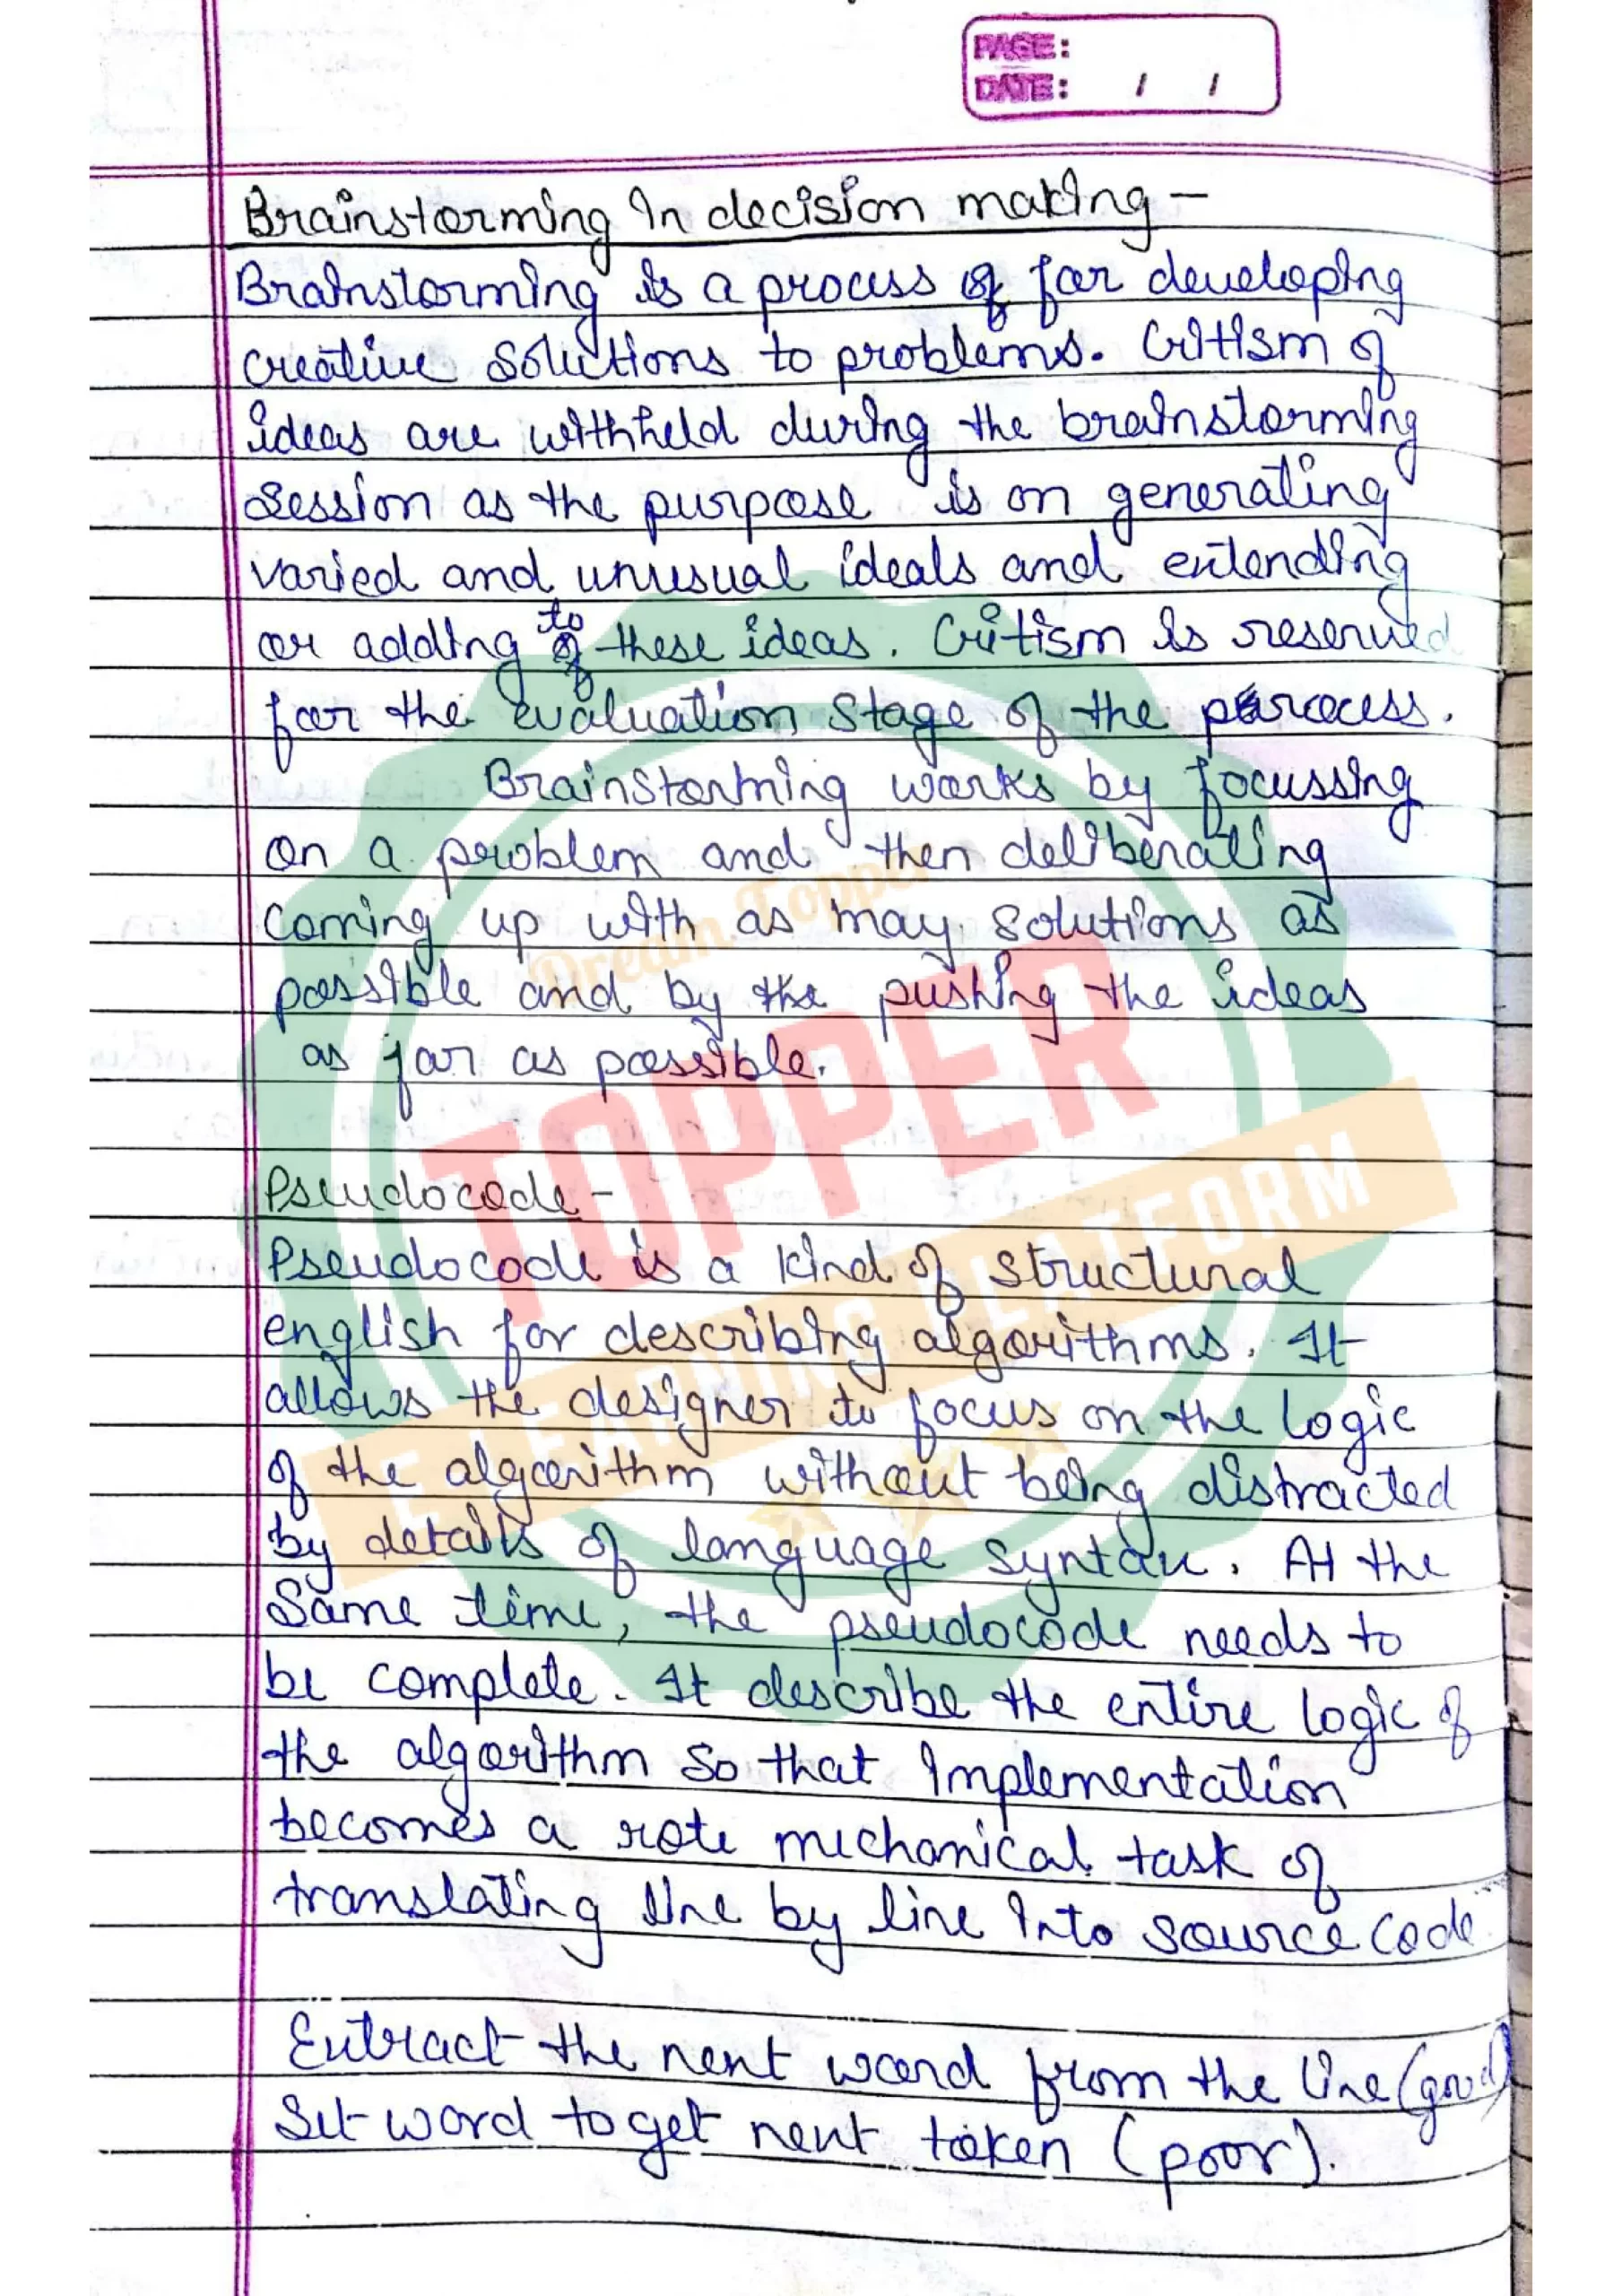 PAGE:
DATE: / /
Brainstorming In decision making -
Brainstorming is a process of for developing
creative solutions to problems. Critism of
ideas are withheld during the brainstorming
session as the purpose is on generating
varied and unusual ideals and extending
or adding to these ideas. Critism is reserved
for the evaluation stage of the process.
Brainstorming works by focussing
on a problem and then deliberating
coming up with as may solutions as
possible and by the pushing the ideas
as far as possible.
Pseudocode -
Pseudocode is a kind of structural
english for describing algorithms. It
allows the designer to focus on the logic
of the algorithm without being distracted
by details of language syntax. At the
same time, the pseudocode needs to
be complete. It describe the entire logic of
the algorithm so that Implementation
becomes a rote michanical task of
translating line by line Into source code.
Extract the next word from the line (good)
Set word to get next token (poor).
Dream Topper
TOPPER
E LEARNING PLATFORM